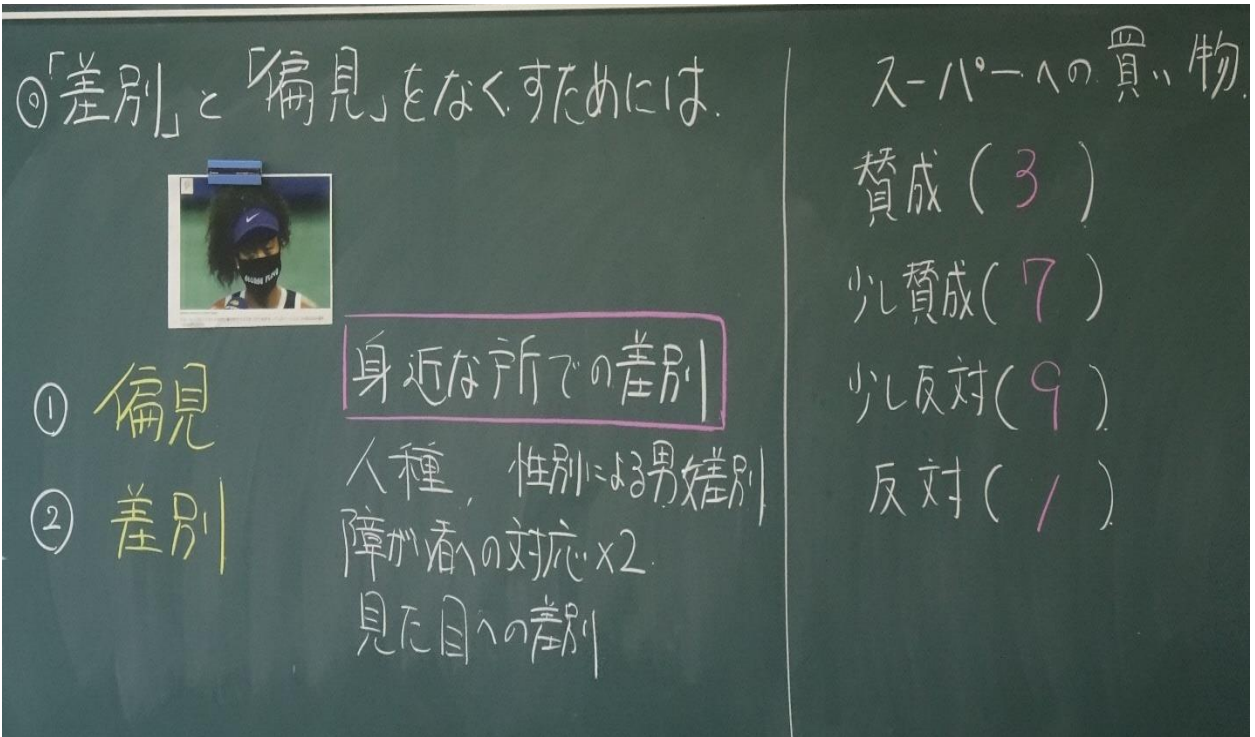 ◎「差別」と「偏見」をなくすためには.
① 偏見
② 差別
身近な所での差別
人種, 性別による男女差別
障がい者への対応×2
見た目への差別
スーパーへの買い物.
賛成(3)
少し賛成(7)
少し反対(9)
反対(1)